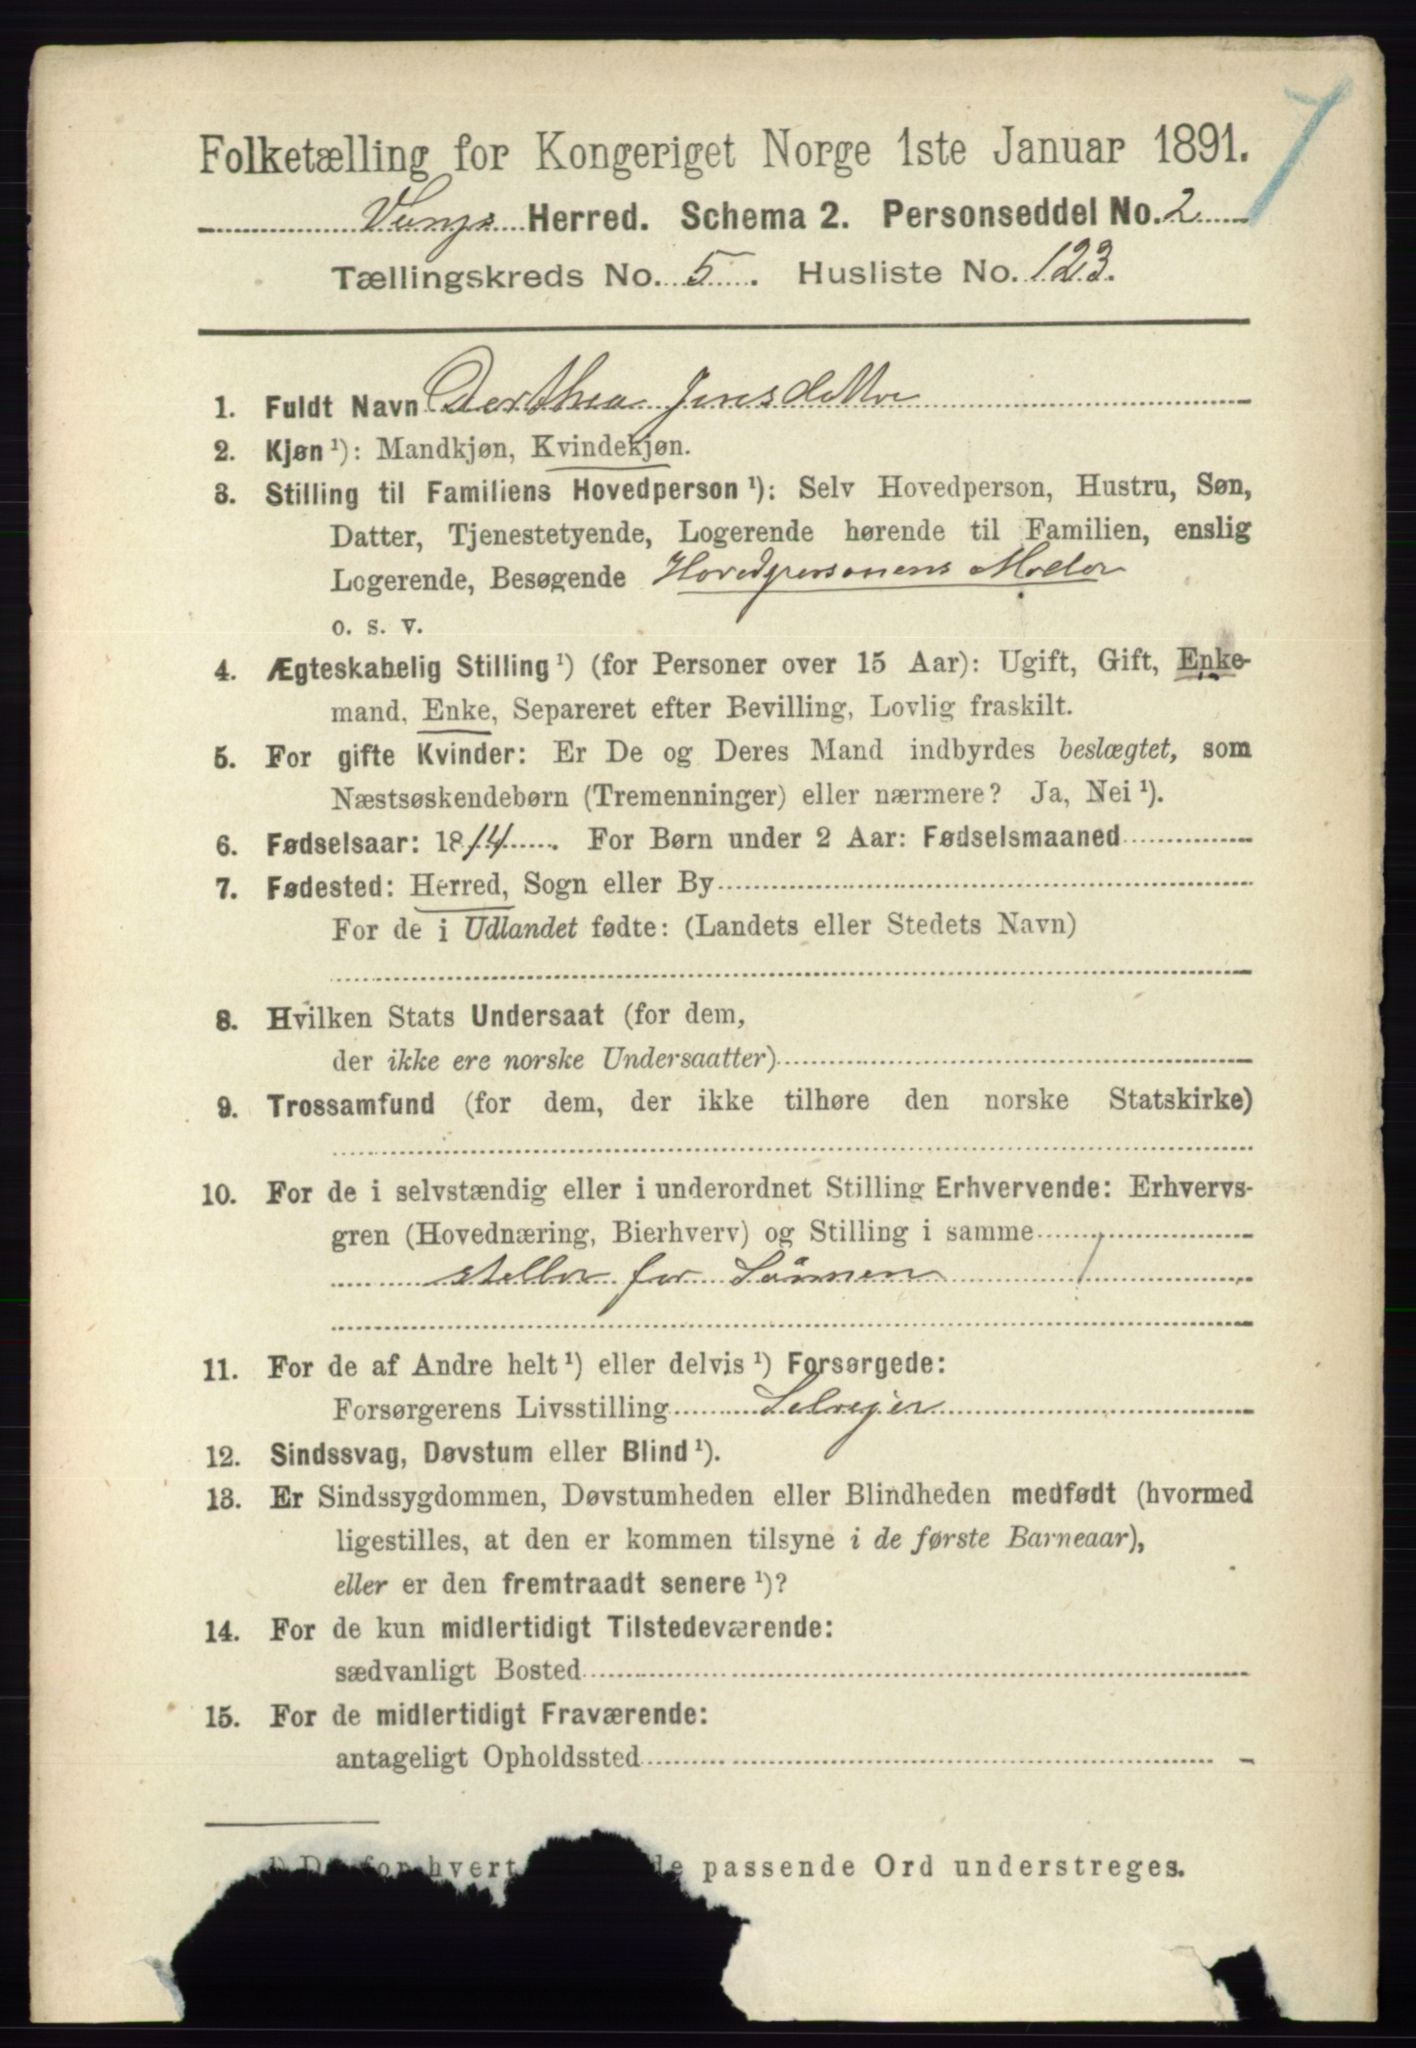 Folketælling for Kongeriget Norge 1ste Januar 1891.
Herred. Schema 2. Personseddel No. 2
Tællingskreds No. 5. Husliste No. 123.
1. Fuldt Navn Dorthea Jensdatter
2. Kjøn ¹): Mandkjøn, Kvindekjøn.
3. Stilling til Familiens Hovedperson ¹): Selv Hovedperson, Hustru, Søn,
Datter, Tjenestetyende, Logerende hørende til Familien, enslig
Logerende, Besøgende Hovedpersonens Moder
o. s. v.
4. Ægteskabelig Stilling ¹) (for Personer over 15 Aar): Ugift, Gift, Enke-
mand, Enke, Separeret efter Bevilling, Lovlig fraskilt.
5. For gifte Kvinder: Er De og Deres Mand indbyrdes beslægtet, som
Næstsøskendebørn (Tremenninger) eller nærmere? Ja, Nei ¹).
6. Fødselsaar: 1814. For Børn under 2 Aar: Fødselsmaaned
7. Fødested: Herred, Sogn eller By
For de i Udlandet fødte: (Landets eller Stedets Navn)
8. Hvilken Stats Undersaat (for dem,
der ikke ere norske Undersaatter)
9. Trossamfund (for dem, der ikke tilhøre den norske Statskirke)
10. For de i selvstændig eller i underordnet Stilling Erhvervende: Erhvervs-
gren (Hovednæring, Bierhverv) og Stilling i samme
steller for Sönnen
11. For de af Andre helt ¹) eller delvis ¹) Forsørgede:
Forsørgerens Livsstilling Selvejer
12. Sindssvag, Døvstum eller Blind ¹).
13. Er Sindssygdommen, Døvstumheden eller Blindheden medfødt (hvormed
ligestilles, at den er kommen tilsyne i de første Barneaar),
eller er den fremtraadt senere ¹)?
14. For de kun midlertidigt Tilstedeværende:
sædvanligt Bosted
15. For de midlertidigt Fraværende:
antageligt Opholdssted
for hvert passende Ord understreges.